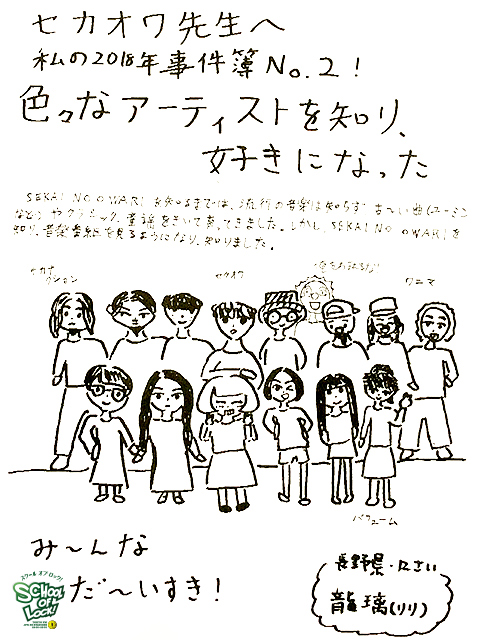 セカオワ先生へ
私の2018年事件簿No.2!
色々なアーティストを知り、
好きになった
SEKAI NO OWARI を知るまでは、流行の音楽は知らず 古〜い曲(ユーミン
など) やクラシック、童謡をきいて育ってきました。しかし、SEKAI NO OWARIを
知り、音楽番組を見るようになり、知りました。
サカナ
クション
セカオワ
ワニマ
パフューム
み〜んな
だ〜いすき!
長野県・12さい
龍璃(リリ)
スクール オブ ロック!
SCHOOL
OF
LOCK!